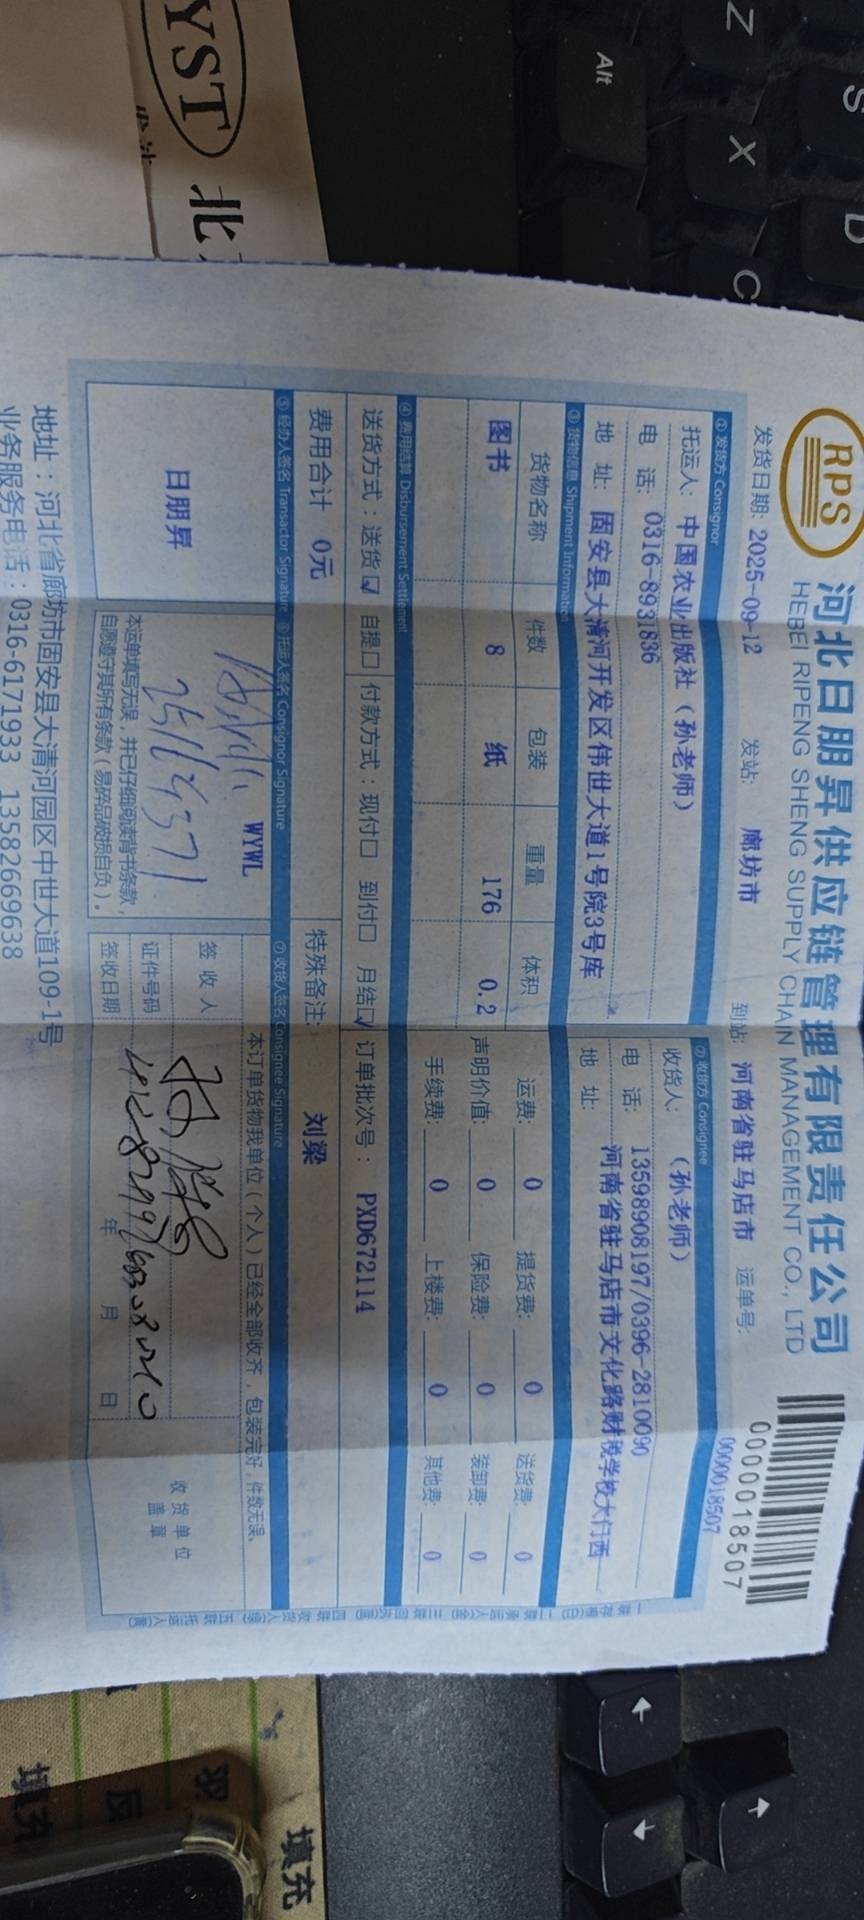 RPS
河北日朋昇供应链管理有限责任公司
HEBEI RIPENG SHENG SUPPLY CHAIN MANAGEMENT CO., LTD
0000018507
发货日期: 2025-09-12 发站: 廊坊市 到站: 河南省驻马店市 运单号: 0000018507
① 发货方 Consignor
托运人: 中国农业出版社（孙老师）
电 话: 0316-8931836
地 址: 固安县大清河开发区伟世大道1号院3号库
② 收货方 Consignee
收货人: （孙老师）
电 话: 13598908197/0396-2810090
地 址: 河南省驻马店市文化路财税学校大门西
③ 货物信息 Shipment Information
货物名称 件数 包装 重量 体积
图书 8 纸 176 0.2
运费: 0 提货费: 0 送货费: 0
声明价值: 0 保险费: 0 装卸费: 0
手续费: 0 上楼费: 0 其他费: 0
④ 费用结算 Disbursement Settlement
送货方式：送货☑ 自提□ 付款方式：现付□ 到付□ 月结☑ 订单批次号： PXD672114
费用合计 0元 特殊备注: 刘梁
⑤ 经办人签名 Transactor Signature ⑥ 托运人签名 Consignor Signature ⑦ 收货人签名 Consignee Signature
日朋昇
WYWL
本运单填写无误，并已仔细阅读背书条款，
自愿遵守其所有条款（易碎品破损自负）。
本订单货物我单位（个人）已经全部收齐，包装完好，件数无误。
签 收 人
证件号码
签收日期 年 月 日
收货单位
盖章
一联存根(白) 二联承运人(金) 三联回执(蓝) 四联收货人(绿) 五联托运人(黄)
地址：河北省廊坊市固安县大清河园区中世大道109-1号
业务服务电话：0316-6171933 13582669638
YST
北
Alt
Z
X
C
S
D
填充
填充